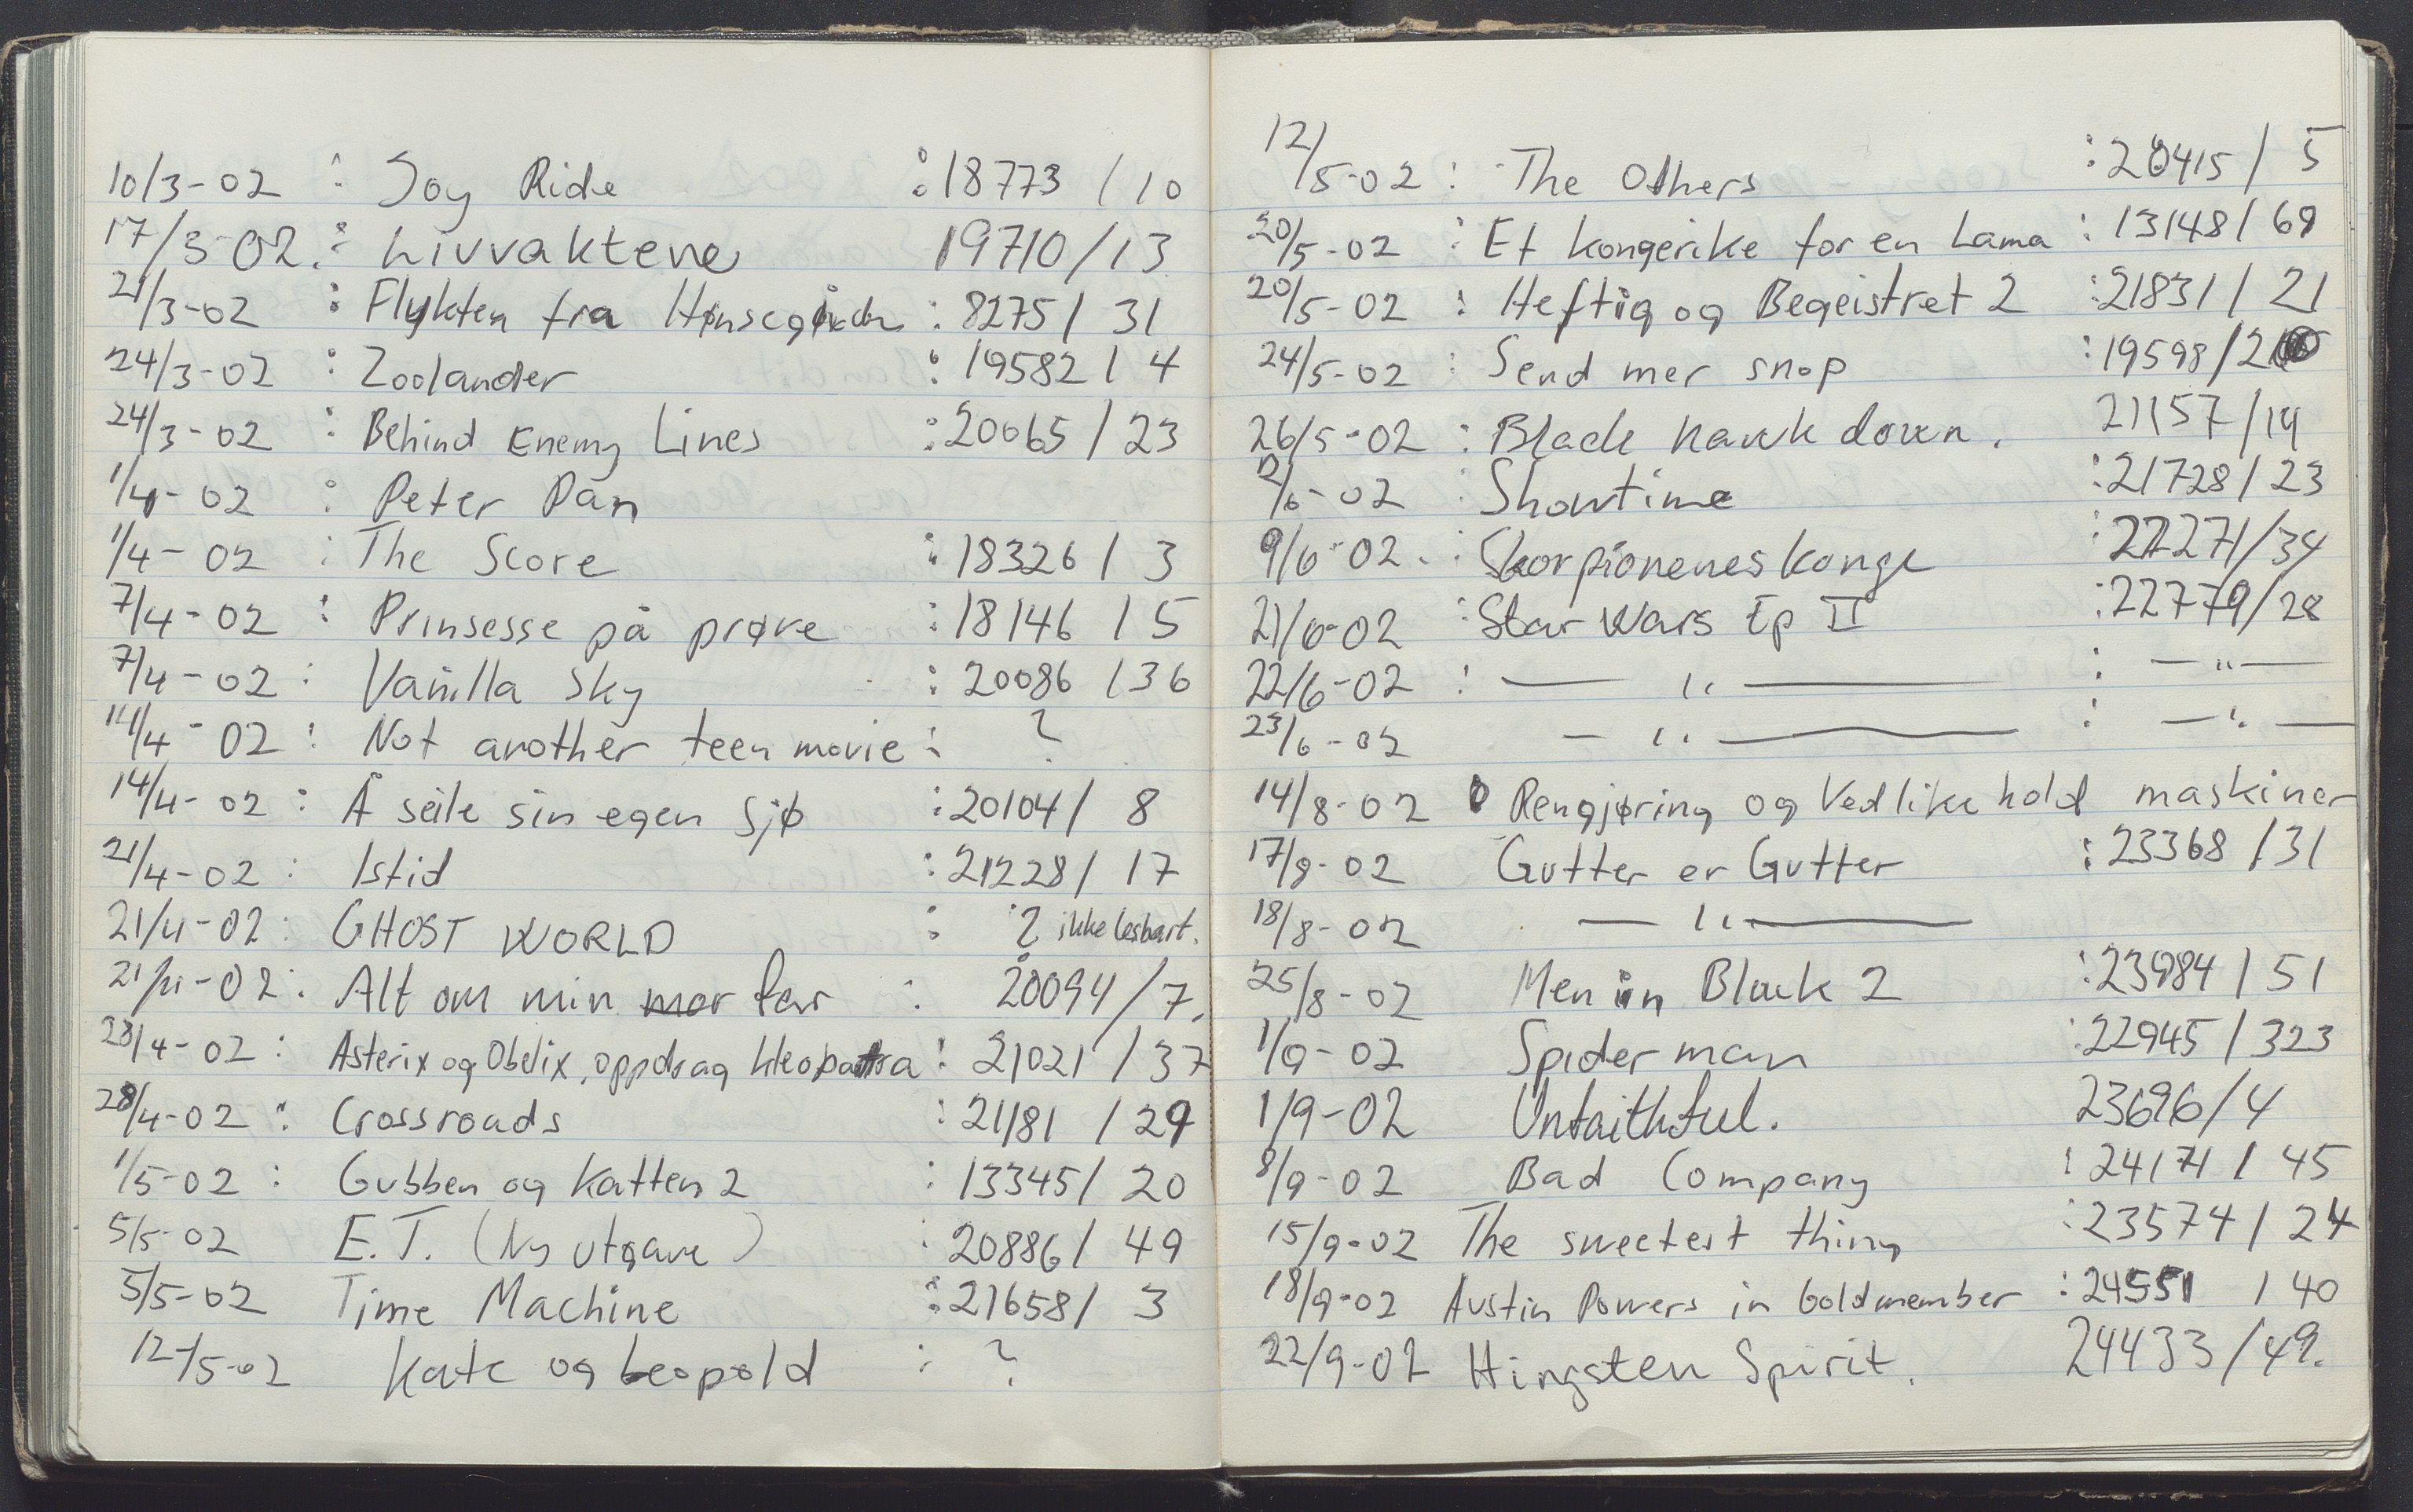 10/3-02 : Joy Ride : 18773 / 10
17/3-02 : Livvaktene 19710/13
21/3-02 : Flykten fra Hønsegården : 8275 / 31
24/3-02 : Zoolander : 19582 / 4
24/3-02 : Behind Enemy Lines : 20065 / 23
1/4-02 : Peter Pan
1/4-02 : The Score : 18326 / 3
7/4-02 : Prinsesse på prøve : 18146 / 5
7/4-02 : Vanilla Sky : 20086 / 36
14/4-02 : Not another teen movie : ?
14/4-02 : Å seile sin egen sjø : 20104 / 8
21/4-02 : Istid : 21228 / 17
21/4-02 : GHOST WORLD : ? ikke lesbart.
21/4-02 : Alt om min mor far : 20094/7.
28/4-02 : Asterix og Obelix, oppdrag Kleopatra : 21021 / 37
28/4-02 : Crossroads : 21181 / 29
1/5-02 : Gubben og Katten 2 : 13345 / 20
5/5-02 E.T. (Ny utgave) : 20886 / 49
5/5-02 Time Machine : 21658 / 3
12/5-02 Kate og Leopold : ?
12/5-02 : The Others : 20415 / 5
20/5-02 : Et kongerike for en Lama : 13148 / 69
20/5-02 : Heftig og Begeistret 2 : 21831 / 21
24/5-02 : Send mer snop : 19598 / 2
26/5-02 : Black hawk down. 21157/14
2/6-02 : Showtime : 21728 / 23
9/6-02. : Skorpionenes konge : 22271/34
21/6-02 : Star Wars Ep II : 22779/28
22/6-02 : — " — : — " —
23/6-02 — " — : — " —
14/8-02 Rengjøring og Vedlikehold maskiner
17/8-02 Gutter er Gutter : 23368 / 31
18/8-02 — " —
25/8-02 Men in Black 2 : 23984 / 51
1/9-02 Spider man : 22945 / 323
1/9-02 Unfaithful. 23696/4
8/9-02 Bad Company : 24171 / 45
15/9-02 The sweetest thing : 23574 / 24
18/9-02 Austin Powers in Goldmember : 24551 / 40
22/9-02 Hingsten Spirit. 24433/49.